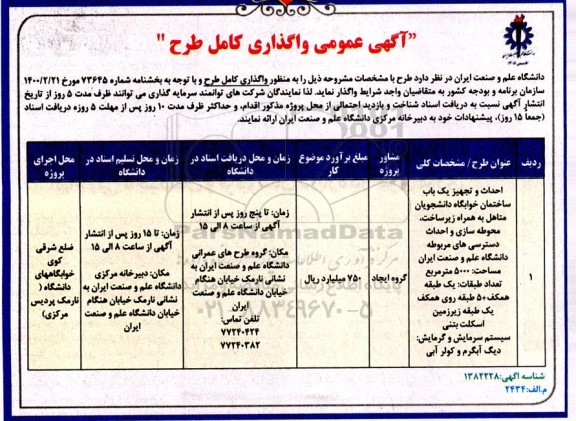 "آگهی عمومی واگذاری کامل طرح"
دانشگاه علم و صنعت ایران در نظر دارد طرح با مشخصات مشروحه ذیل را به منظور واگذاری کامل طرح و با توجه به بخشنامه شماره ۷۳۶۴۵ مورخ ۱۴۰۰/۲/۲۱
سازمان برنامه و بودجه کشور به متقاضیان واجد شرایط واگذار نماید. لذا نمایندگان شرکت های توانمند سرمایه گذاری می توانند ظرف مدت ۵ روز از تاریخ
انتشار آگهی نسبت به دریافت اسناد شناخت و بازدید احتمالی از محل پروژه مذکور اقدام، و حداکثر ظرف مدت ۱۰ روز پس از مهلت ۵ روزه دریافت اسناد
(جمعا ۱۵ روز)، پیشنهادات خود به دبیرخانه مرکزی دانشگاه علم و صنعت ایران ارائه نمایند.
ردیف
عنوان طرح / مشخصات کلی
مشاور
پروژه
مبلغ برآورد موضوع
کار
زمان و محل دریافت اسناد در
دانشگاه
زمان و محل تسلیم اسناد در
دانشگاه
محل اجرای
پروژه
۱
احداث و تجهیز یک باب
ساختمان خوابگاه دانشجویان
متاهل به همراه زیرساخت،
محوطه سازی و احداث
دسترسی های مربوطه
دانشگاه علم و صنعت ایران
مساحت: ۵۰۰۰ مترمربع
تعداد طبقات: یک طبقه
همکف+۵ طبقه روی همکف
یک طبقه زیرزمین
اسکلت بتنی
سیستم سرمایش و گرمایش:
دیگ آبگرم و کولر آبی
گروه ایجاد
۷۵۰ میلیارد ریال
زمان: تا پنج روز پس از انتشار
آگهی از ساعت ۸ الی ۱۵
مکان: گروه طرح های عمرانی
دانشگاه علم و صنعت ایران به
نشانی نارمک خیابان هنگام
خیابان دانشگاه علم و صنعت
ایران
تلفن تماس:
۷۷۲۴۰۴۲۴
۷۷۲۴۰۳۸۲
زمان: تا ۱۵ روز پس از انتشار
آگهی از ساعت ۸ الی ۱۵
مکان: دبیرخانه مرکزی
دانشگاه علم و صنعت ایران به
نشانی نارمک خیابان هنگام
خیابان دانشگاه علم و صنعت
ایران
ضلع شرقی
کوی
خوابگاههای
دانشگاه (
نارمک پردیس
مرکزی)
ParsNamadData
۰۲۱-۸۸۳۴۹۶۷۰-۵
شناسه آگهی: ۱۳۸۲۲۲۸
م.الف: ۲۴۳۴